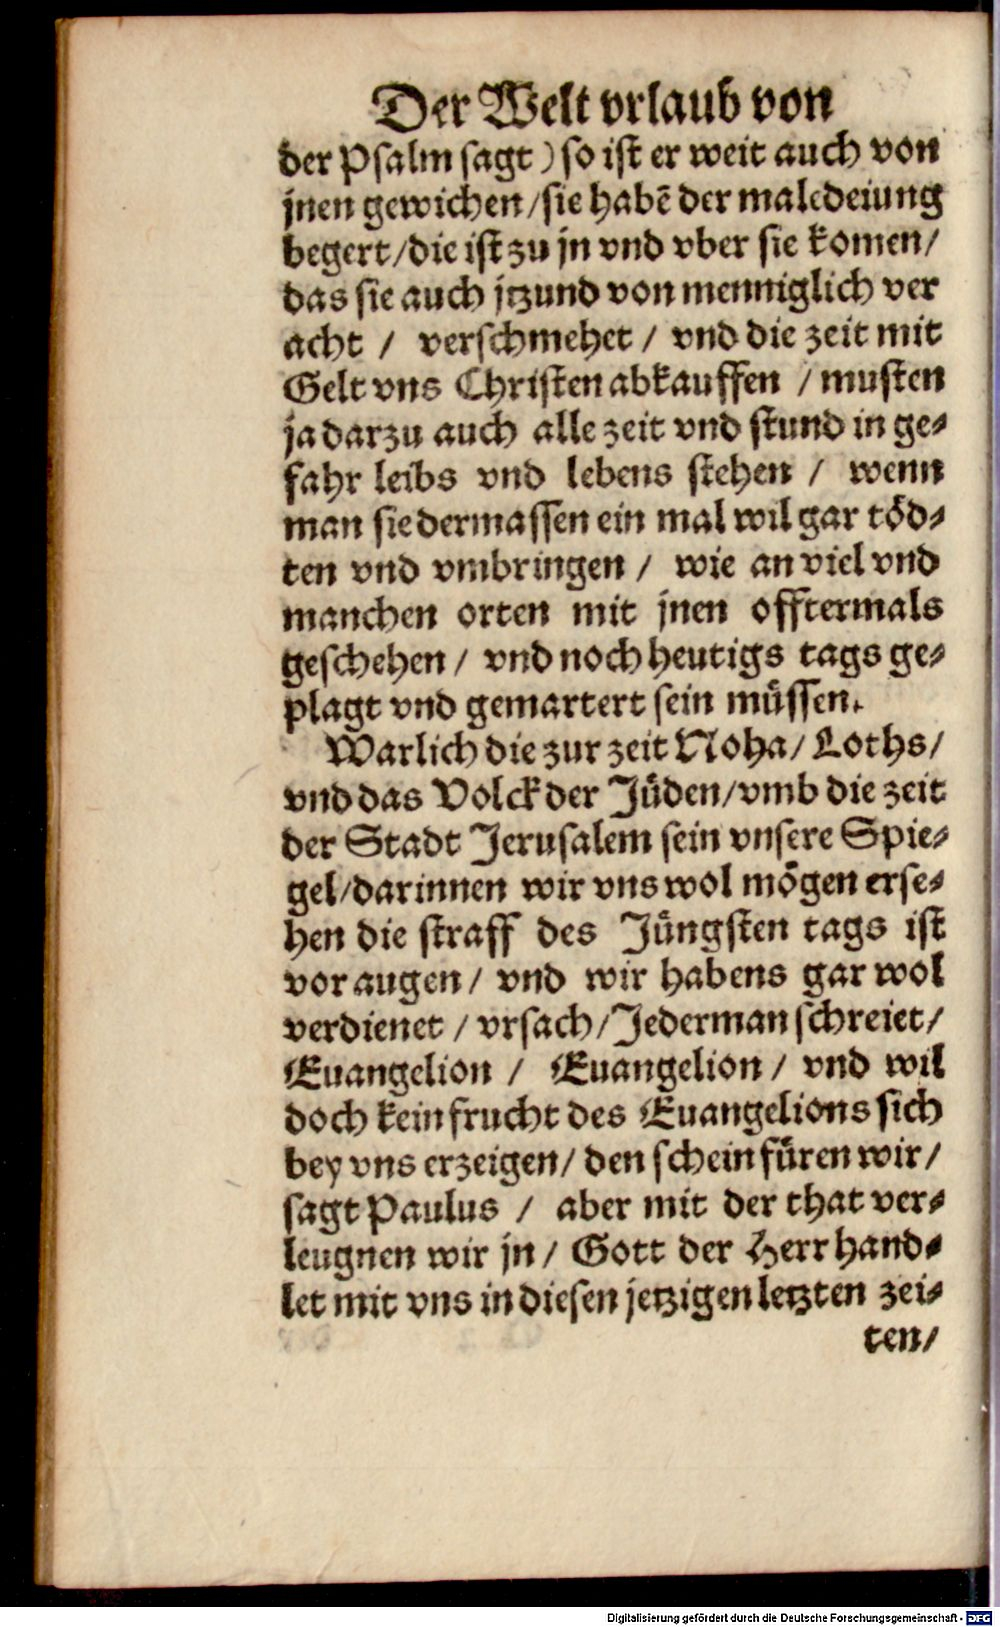 Der Welt vrlaub von
der Psalm sagt) so ist er weit auch von
jnen gewichen/sie habē der maledeiung
begert/die ist zu jn vnd vber sie komen/
das sie auch jtzund von menniglich ver
acht / verschmehet / vnd die zeit mit
Gelt vns Christen abkauffen / musten
ja darzu auch alle zeit vnd stund in ge-
fahr leibs vnd lebens stehen / wenn
man sie dermassen ein mal wil gar töd-
ten vnd vmbringen / wie an viel vnd
manchen orten mit jnen offtermals
geschehen / vnd noch heutigs tags ge-
plagt vnd gemartert sein müssen.
Warlich die zur zeit Noha/ Loths/
vnd das Volck der Jüden/vmb die zeit
der Stadt Jerusalem sein vnsere Spie-
gel/darinnen wir vns wol mögen erse-
hen die straff des Jüngsten tags ist
vor augen / vnd wir habens gar wol
verdienet / vrsach/Jederman schreiet/
Euangelion / Euangelion / vnd wil
doch kein frucht des Euangelions sich
bey vns erzeigen/ den schein füren wir/
sagt Paulus / aber mit der that ver-
leugnen wir jn/ Gott der Herr hand-
let mit vns in diesen jetzigen letzten zei-
ten/
Digitalisierung gefördert durch die Deutsche Forschungsgemeinschaft - DFG